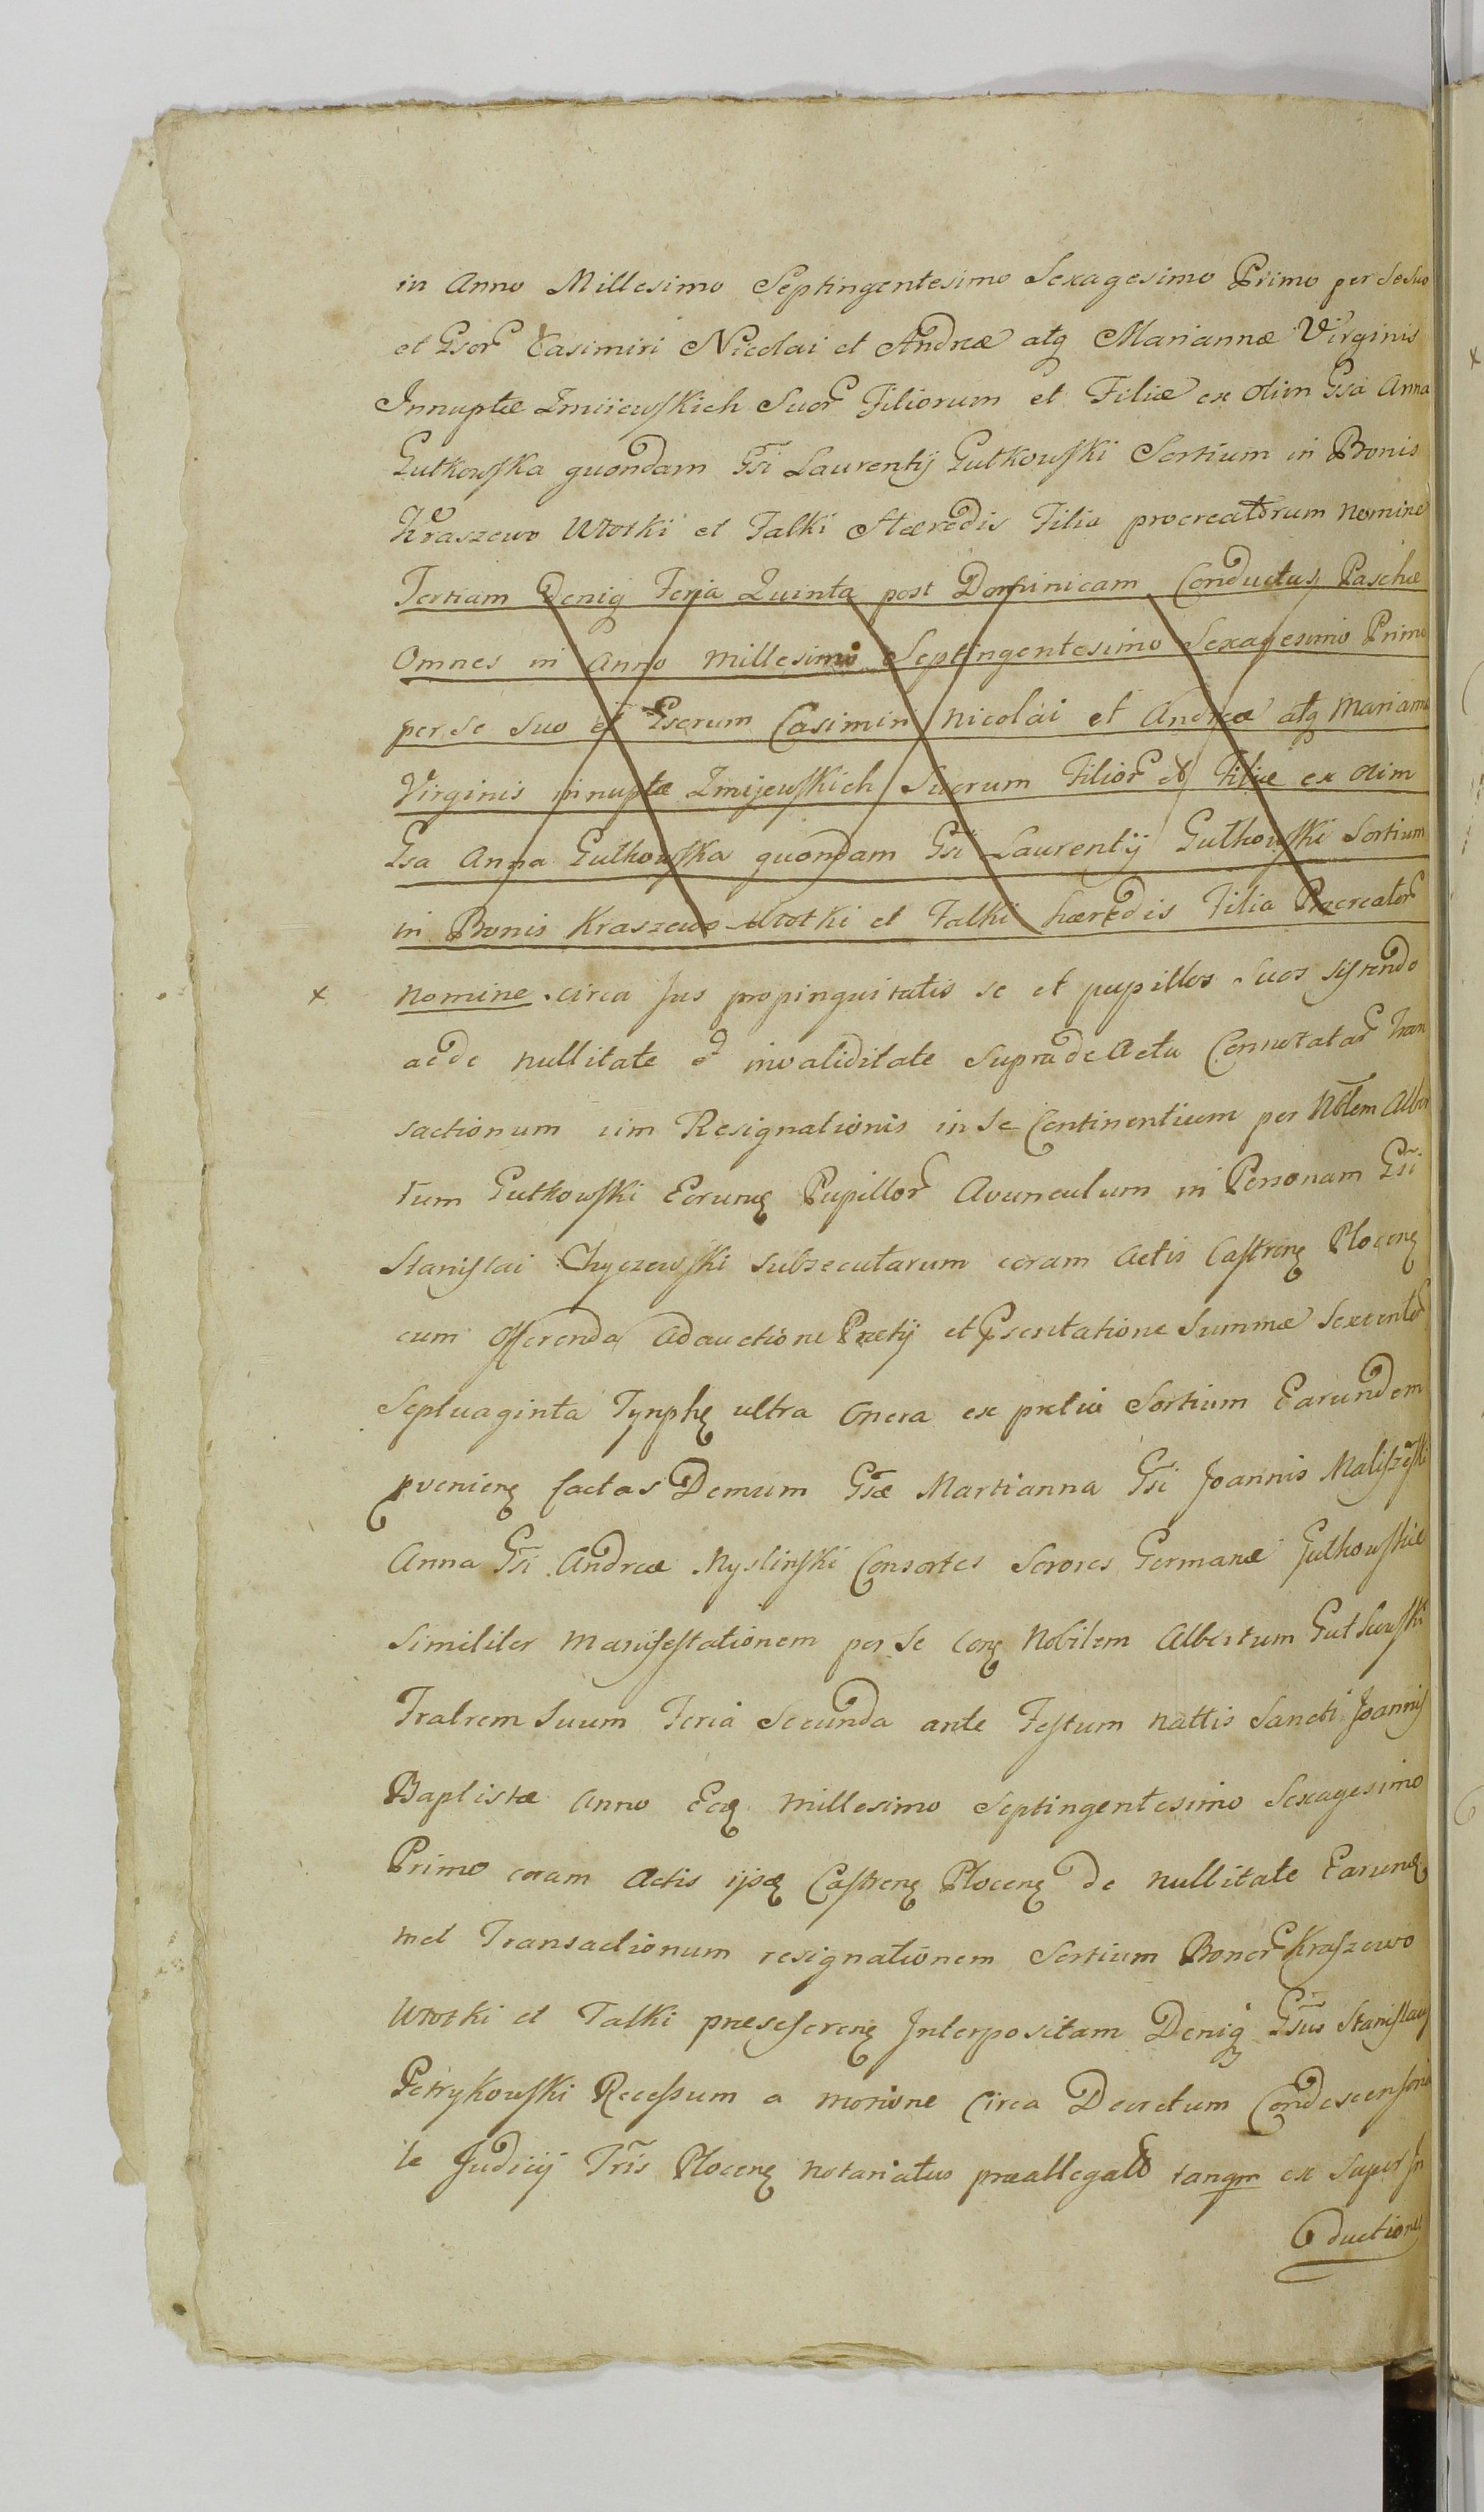 in Anno Millesimo Septingentesimo Sexagesimo Primo per se suo
et Gsor Casimiri Nicolai et Andreæ atq Mariannæ Virginis
Innuptæ Zmijewskich Suor Filiorum et Filiæ ex olim Gsa Anna
Gutkowska quondam Gsi Laurentij Gutkowski Sortium in Bonis
Kraszewo Wtotki et Falki Hæredis Filia procreatorum nomine
Tertiam Deniq Feria Quinta post Dominicam Conductus Paschæ
Omnes in Anno Millesimo Septingentesimo Sexagesimo Primo
per se suo et Gsorum Casimiri Nicolai et Andreæ atq Marianæ
Virginis innuptæ Zmijewskich Suorum Filior et Filiæ ex olim
Gsa Anna Gutkowska quondam Gsi Laurentij Gutkowski Sortium
in Bonis Kraszewo Wtotki et Falki hæredis Filia Procreator
x nomine circa Jus propinquitatis se et pupillos suos sistendo
ac de nullitate et invaliditate supra de Actu Connotatar Tran
sactionum vim Resignationis in se Continentium per Nblem Alber
tum Gutkowski Eorunq Pupillor Avunculum in Personam Gsi
Stanislai Chyczewski subsecutarum coram Actis Castrenq Plocenq
cum Offerenda Adauctione Pretij et Psentatione Summæ Sexcentor
Septuaginta Tynphq ultra Onera ex pretio Sortium Earundem
pvenienq factas Demum Gsæ Martianna Gsi Joannis Maliszewski
Anna Gsi Andreæ Myslinski Consortes Sorores Germanæ Gutkowskie
Similiter Manifestationem per se Conq Nobilem Albertum Gutkowski
Fratrem Suum Feria Secunda ante Festum Nattis Sancti Joannis
Baptistæ Anno Eoq Millesimo Septingentesimo Sexagesimo
Primo coram Actis ijsq Castrenq Plocenq de nullitate Earunq
met Transactionum resignationem Sortium Bonor Kraszewo
Wtotki et Falki præseferenq Interpositam Deniq Gsus Stanislaus
Petrykowski Recessum a motione Circa Decretum Condescensoria
le Judicij Tris Plocenq Notariatus præallegato tanqm ex Super In
ductione